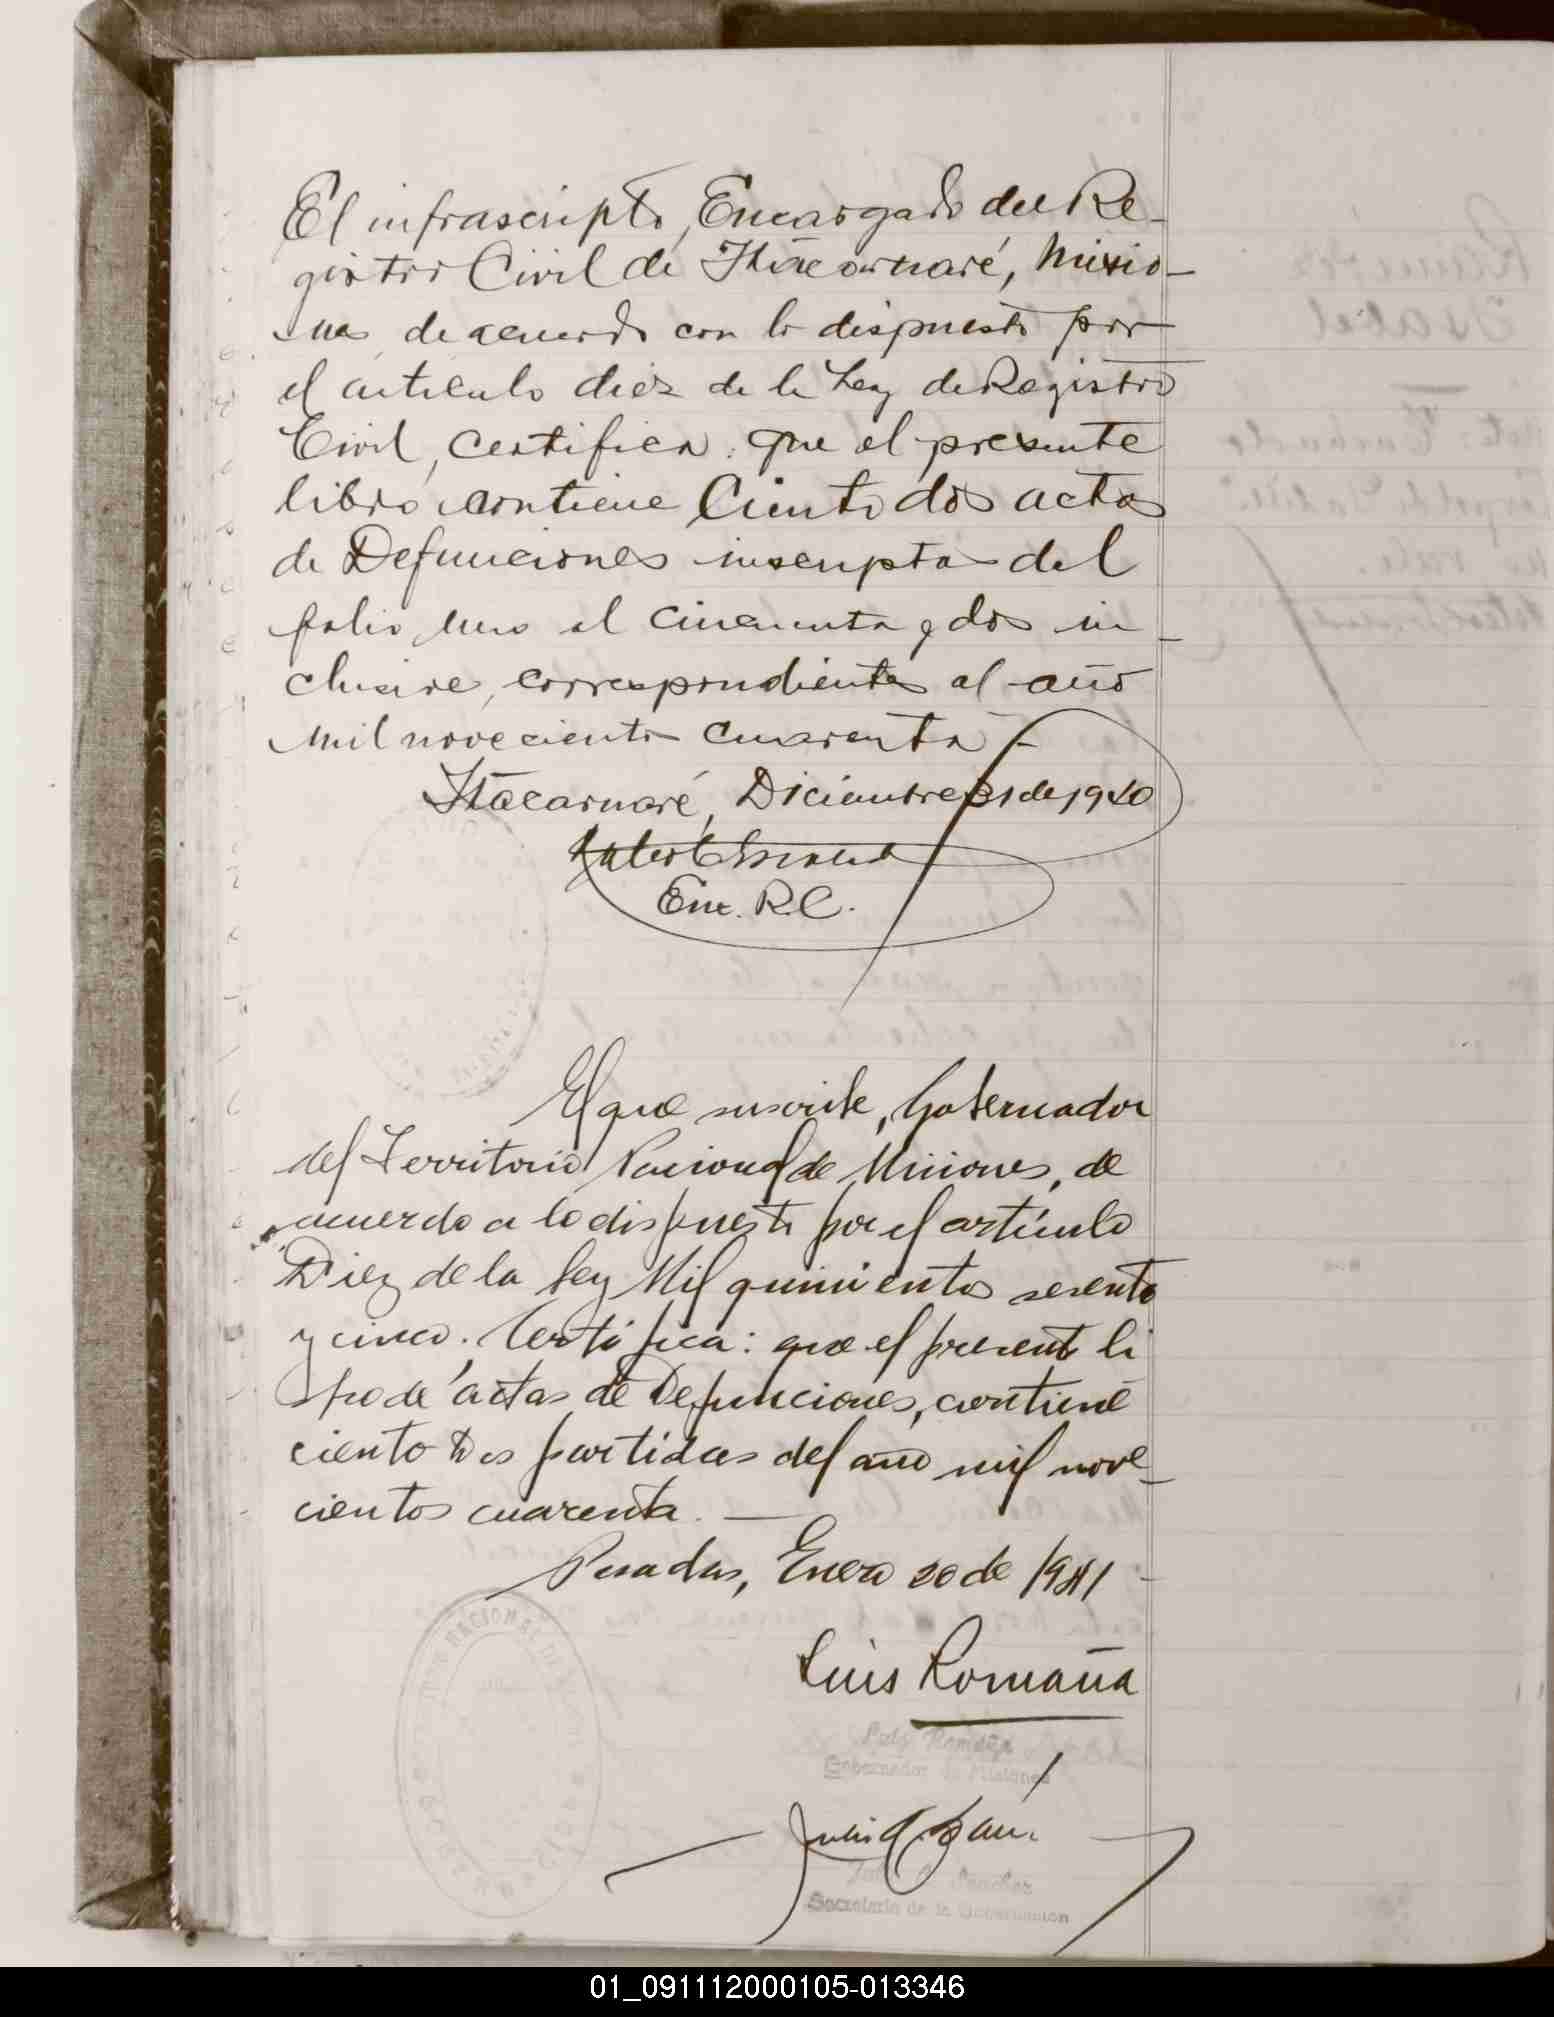 El infrascripto, Encargado del Re-
gistro Civil de Itacaruaré, Misio-
nes, de acuerdo con lo dispuesto por
el artículo diez de la Ley de Registro
Civil, certifica: que el presente
libro contiene Ciento dos actas
de Defunciones inscriptas del
folio uno al cincuenta y dos in-
clusive, correspondientes al año
mil novecientos cuarenta -
Itacaruaré, Diciembre 31 de 1940
Enc. R.C.
El que suscribe, Gobernador
del Territorio Nacional de Misiones, de
acuerdo a lo dispuesto por el artículo
Diez de la ley Mil quinientos sesenta
y cinco. Certifica: que el presente li
bro de actas de Defunciones, contiene
ciento dos partidas del año mil nove-
cientos cuarenta. —
Posadas, Enero 20 de 1941
Luis Romaña
Luis Romaña
Gobernador de Misiones
Sanchez
Secretario de la Gobernacion
01_091112000105-013346